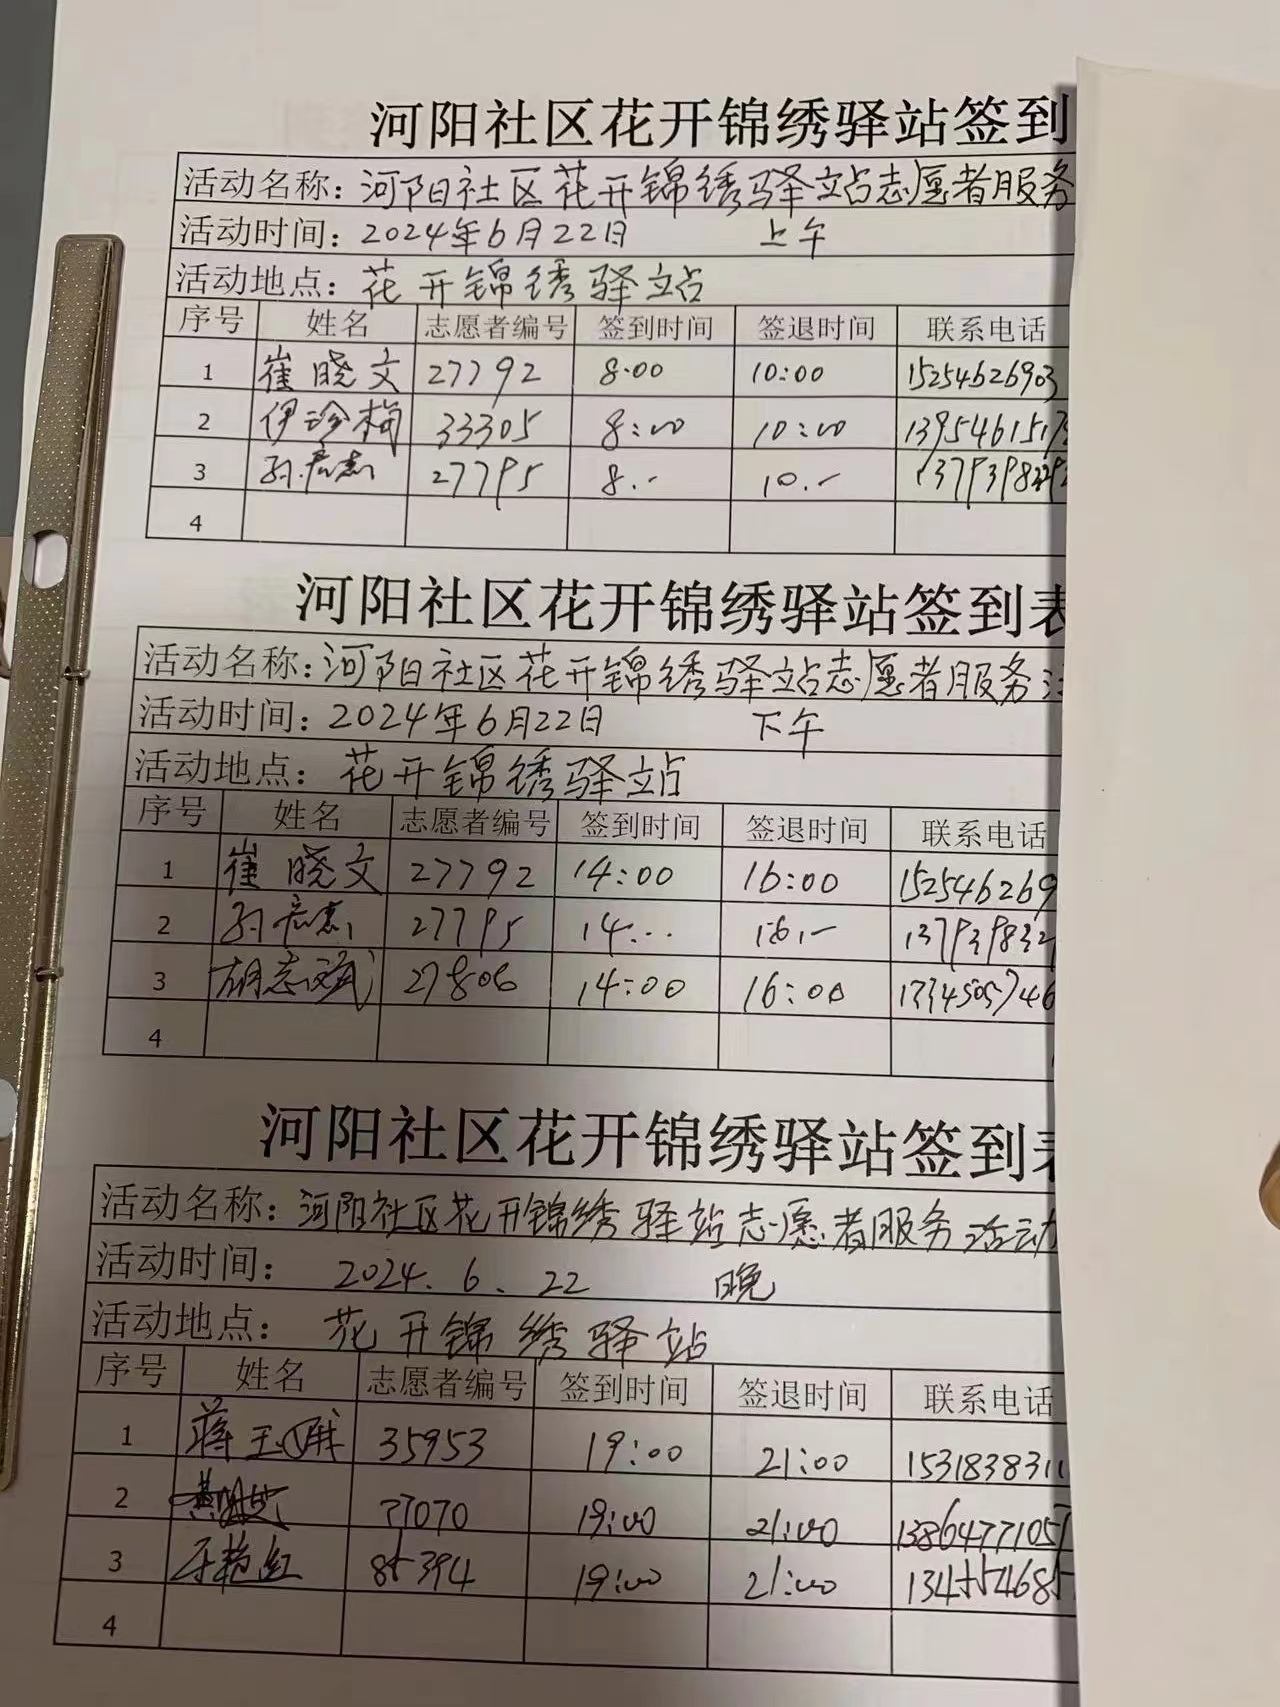 河阳社区花开锦绣驿站签到
活动名称：河阳社区花开锦绣驿站志愿者服务
活动时间：2024年6月22日 上午
活动地点：花开锦绣驿站
序号 姓名 志愿者编号 签到时间 签退时间 联系电话
1 崔晓文 27792 8:00 10:00 15254626903
2 伊珍梅 33305 8:00 10:00 139546151
3 27795 8.- 10.- 13793983
4
河阳社区花开锦绣驿站签到表
活动名称：河阳社区花开锦绣驿站志愿者服务
活动时间：2024年6月22日 下午
活动地点：花开锦绣驿站
序号 姓名 志愿者编号 签到时间 签退时间 联系电话
1 崔晓文 27792 14:00 16:00 152546269
2 27795 14... 16.- 137939832
3 胡志斌 27806 14:00 16:00 1334505746
4
河阳社区花开锦绣驿站签到表
活动名称：河阳社区花开锦绣驿站志愿者服务活动
活动时间：2024.6.22 晚
活动地点：花开锦绣驿站
序号 姓名 志愿者编号 签到时间 签退时间 联系电话
1 蒋玉 35953 19:00 21:00 1531838311
2 77070 19:00 21:00 1386477105
3 艳红 85394 19:00 21:00 134554685
4